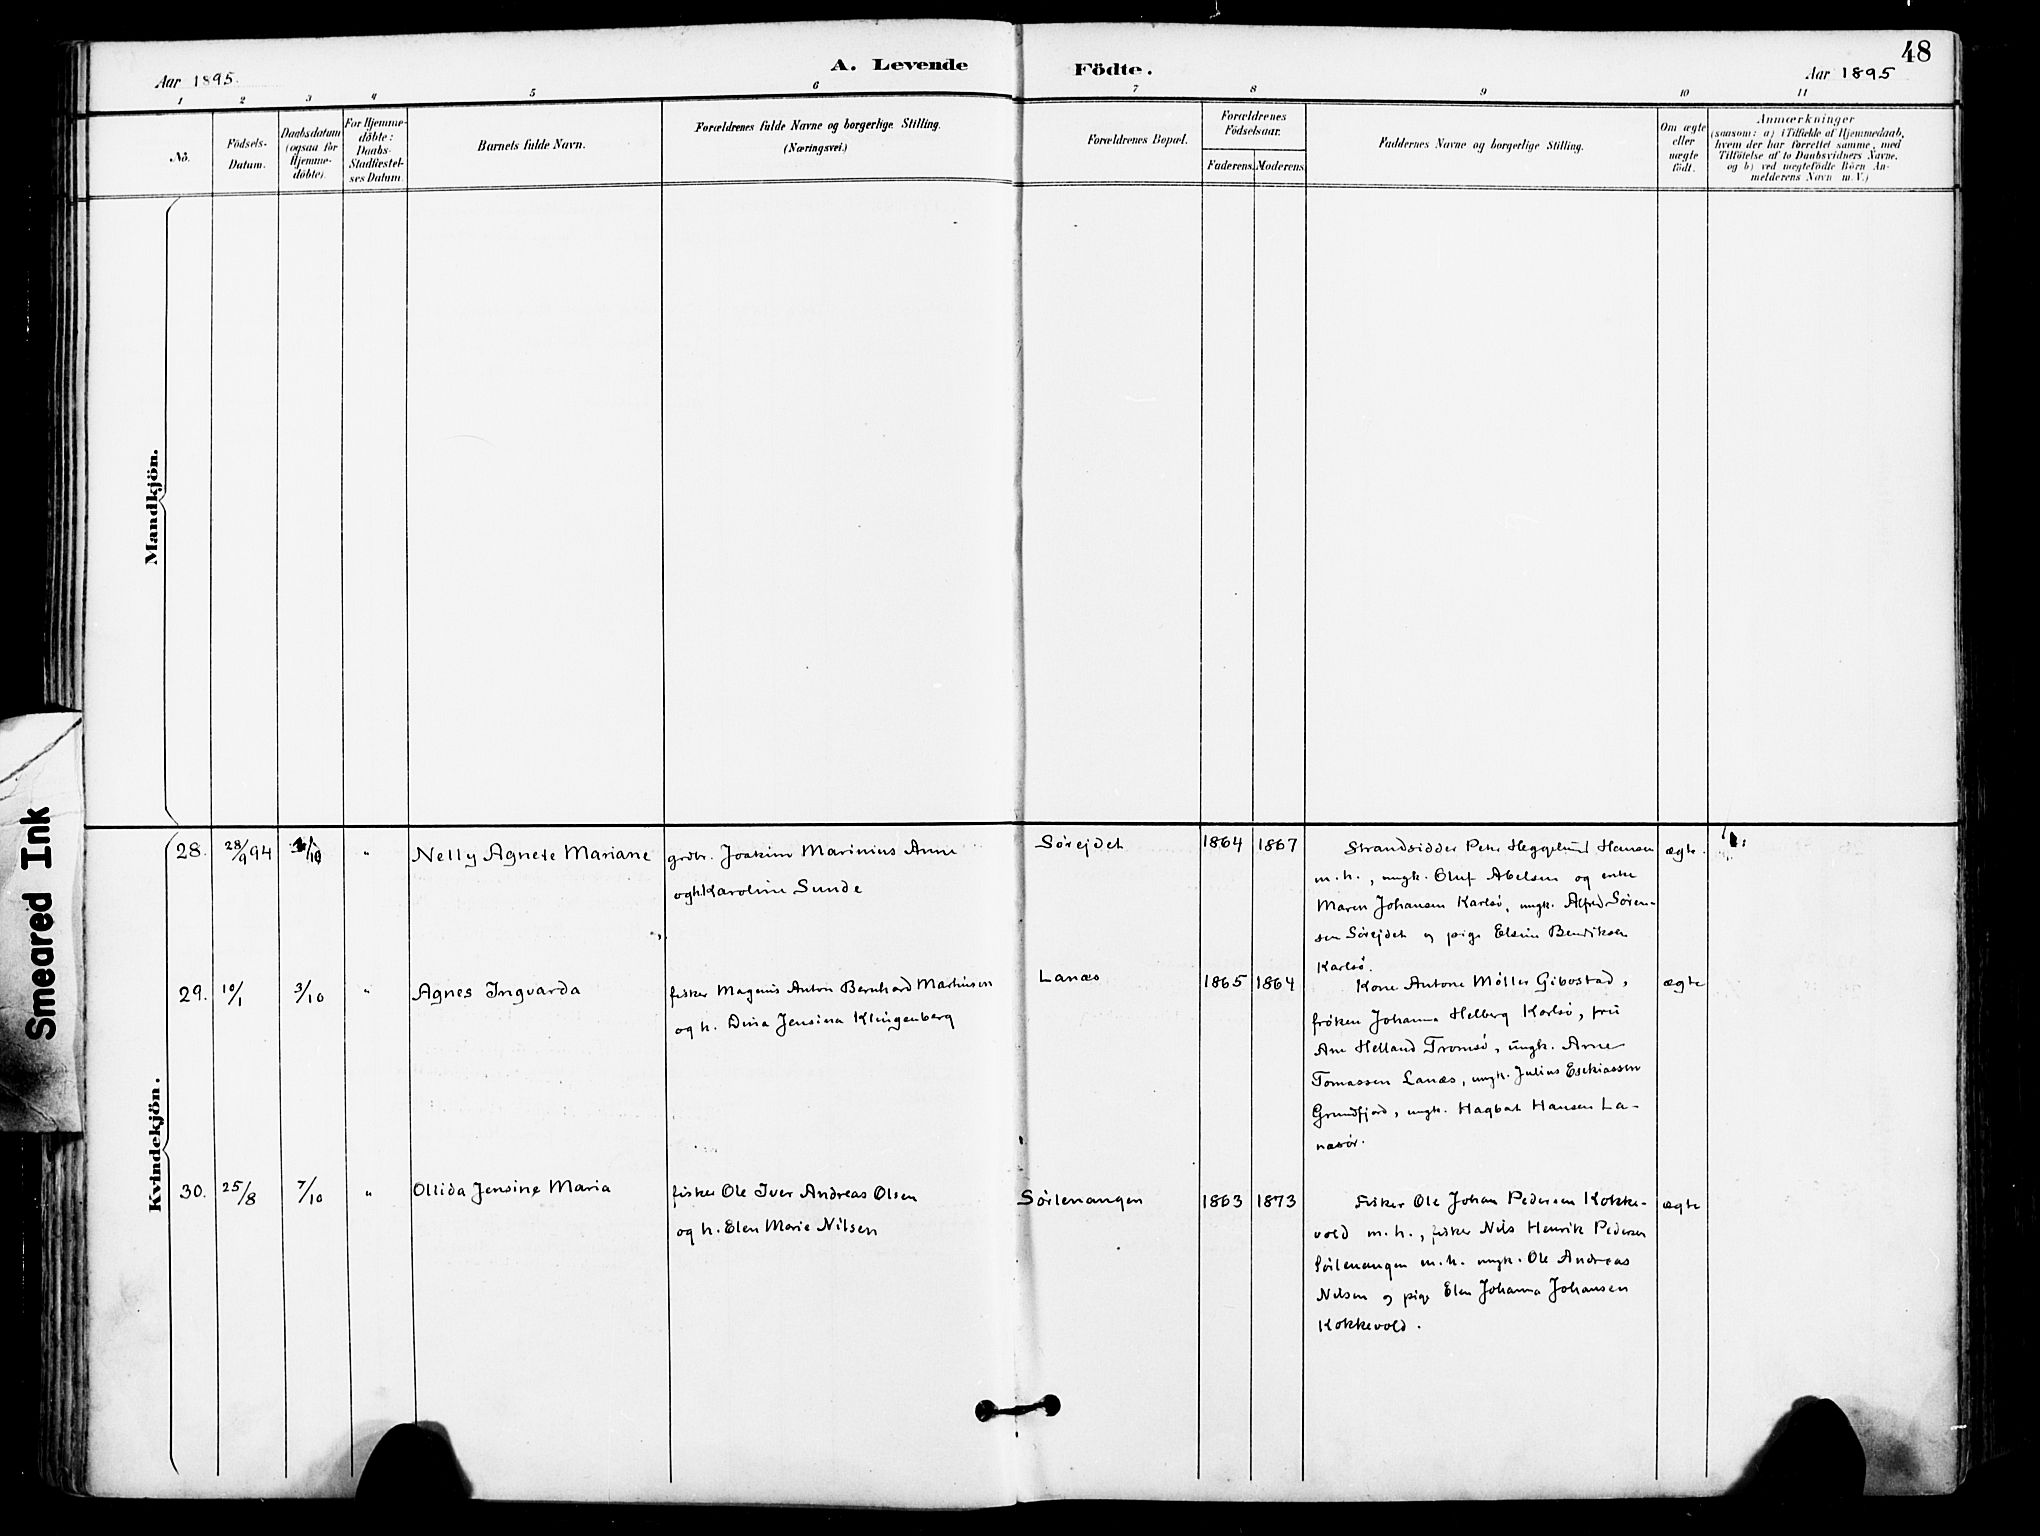 48
Aar 1895.
A. Levende
Födte.
Aar 1895
1 2 3 4 5 6 7 8 9 10 11
No.
Födsels-
Datum.
Daabsdatum
(ogsaa for
Hjemme-
döbte).
For Hjemme-
döbte:
Daabs-
Stadfæstel-
ses Datum.
Barnets fulde Navn.
Forældrenes fulde Navne og borgerlige Stilling.
(Næringsvei.)
Forældrenes Bopæl.
Forældrenes
Födselsaar.
Faderens. Moderens.
Faddernes Navne og borgerlige Stilling.
Om ægte
eller
uægte
födt.
Anmærkninger
(saasom: a) i Tilfælde af Hjemmedaab,
hvem der har forrettet samme, med
Tilföielse af to Daabsvidners Navne,
og b) ved uægtefödte Börn An-
melderens Navn m. V.)
Mandkjön.
Kvindekjön.
Smeared Ink
28.
28/9 94
/10
"
Nelly Agnete Mariane
grdbr. Joakim Marinius
og h. Karoline Sunde
Sörejdet
1864
1867
Strandsidder Peter Hegglund Hansen
m. h., ungk. Oluf Abelsen og enke
Maren Johansen Karlsö, ungk. Alfred Sören-
sen Sörejdet og pige Elsine Bendiksen
Karlsö.
ægte.
29.
10/1
3/10
"
Agnes Ingvarda
fisker Magnus Anton Bernhard Martinsen
og h. Dina Jensina Klingenberg
Lanæs
1865
1864
Kone Antone Möller Gibostad,
fröken Johanna Helberg Karlsö, fru
Ane Helland Tromsö, ungk. Arne
Tomassen Lanæs, ungk. Julius Esekiassen
Grundfjord, ungk. Hagbart Hansen La-
næsör.
ægte
30.
25/8
7/10
"
Ollida Jensine Maria
fisker Ole Iver Andreas Olsen
og h. Elen Marie Nilsen
Sörlenangen
1863
1873
Fisker Ole Johan Pedersen Kokke-
vold m. h., fisker Nils Henrik Pedersen
Sörlenangen m. h. ungk. Ole Andreas
Nilsen og pige Elen Johanna Johansen
Kokkevold.
ægte